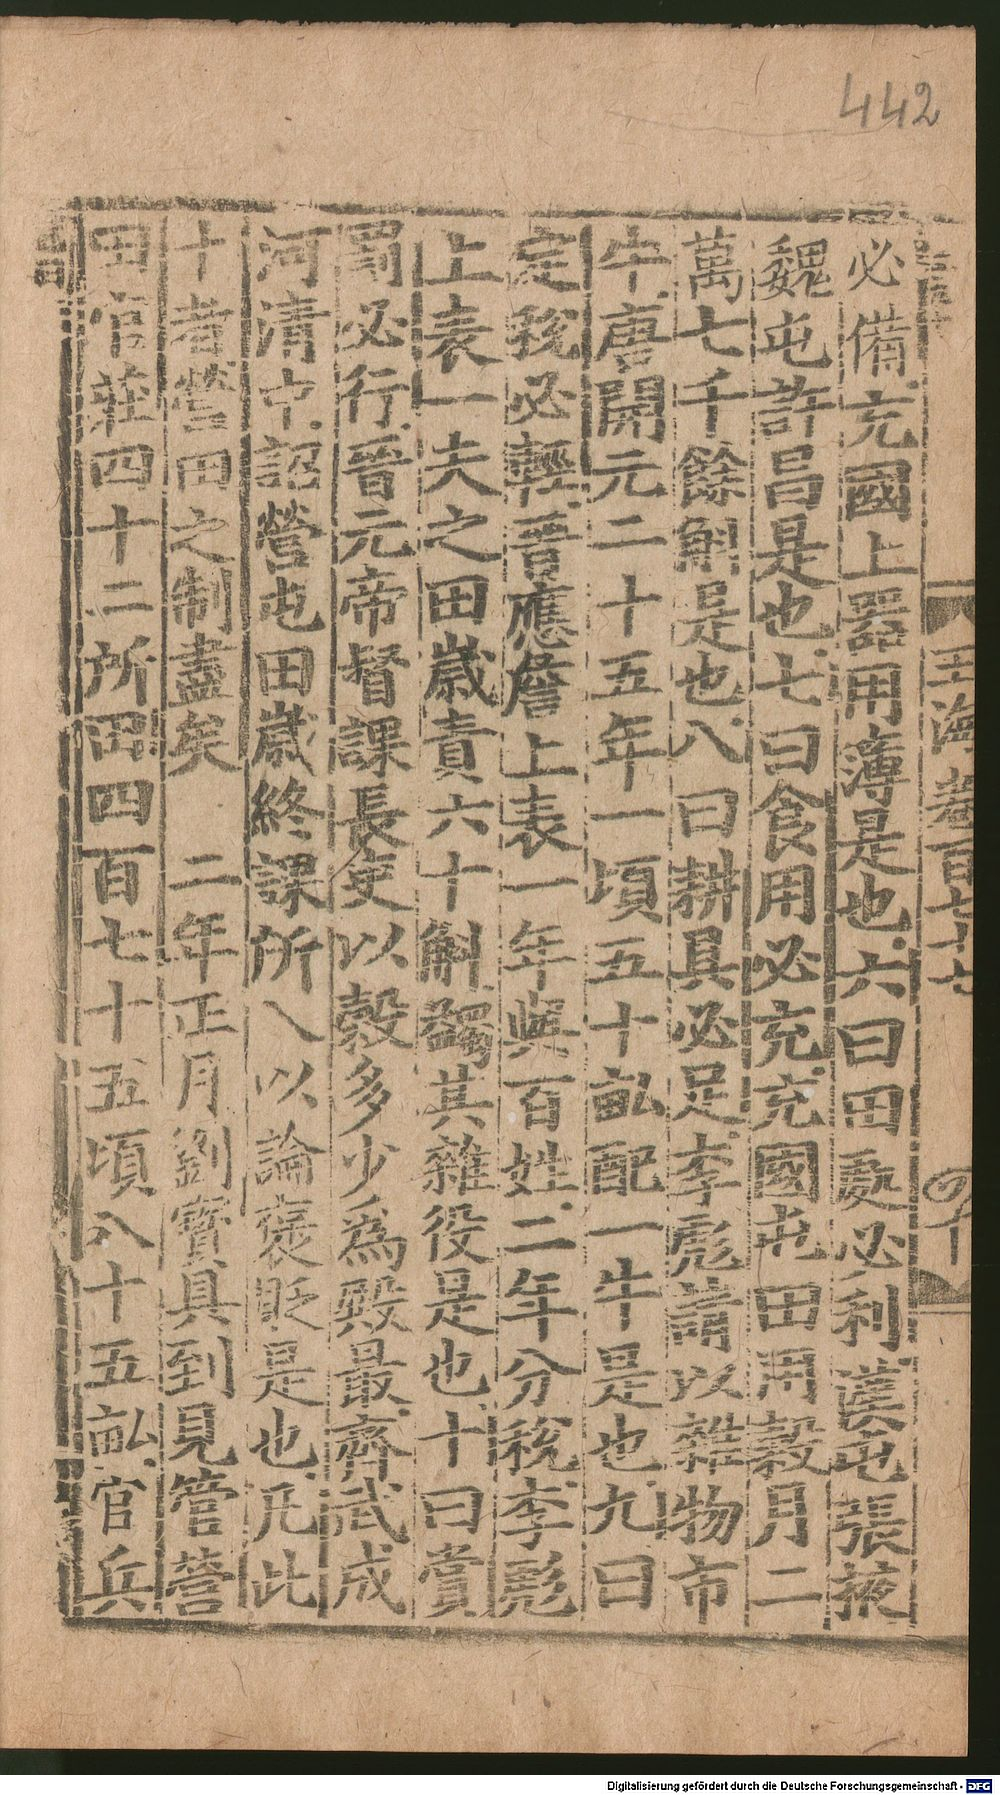 442
玉海卷百七十七
必備充國上器用簿是也六曰田處必利漢屯張掖
魏屯許昌是也七曰食用必充充國屯田用穀月二
萬七千餘斛是也八曰耕具必足李彪請以雜物市
牛唐開元二十五年一頃五十畝配一牛是也九曰
定稅必輕晉應詹上表一年與百姓二年分稅李彪
上表一夫之田歲責六十斛蠲其雜役是也十曰賞
罰必行晉元帝督課長吏以穀多少為殿最齊武成
河清中詔營屯田歲終課所入以論褒貶是也凡此
十者營田之制盡矣 二年正月劉寶具到見管營
田官莊四十二所田四百七十五頃八十五畝官兵
Digitalisierung gefördert durch die Deutsche Forschungsgemeinschaft - DFG